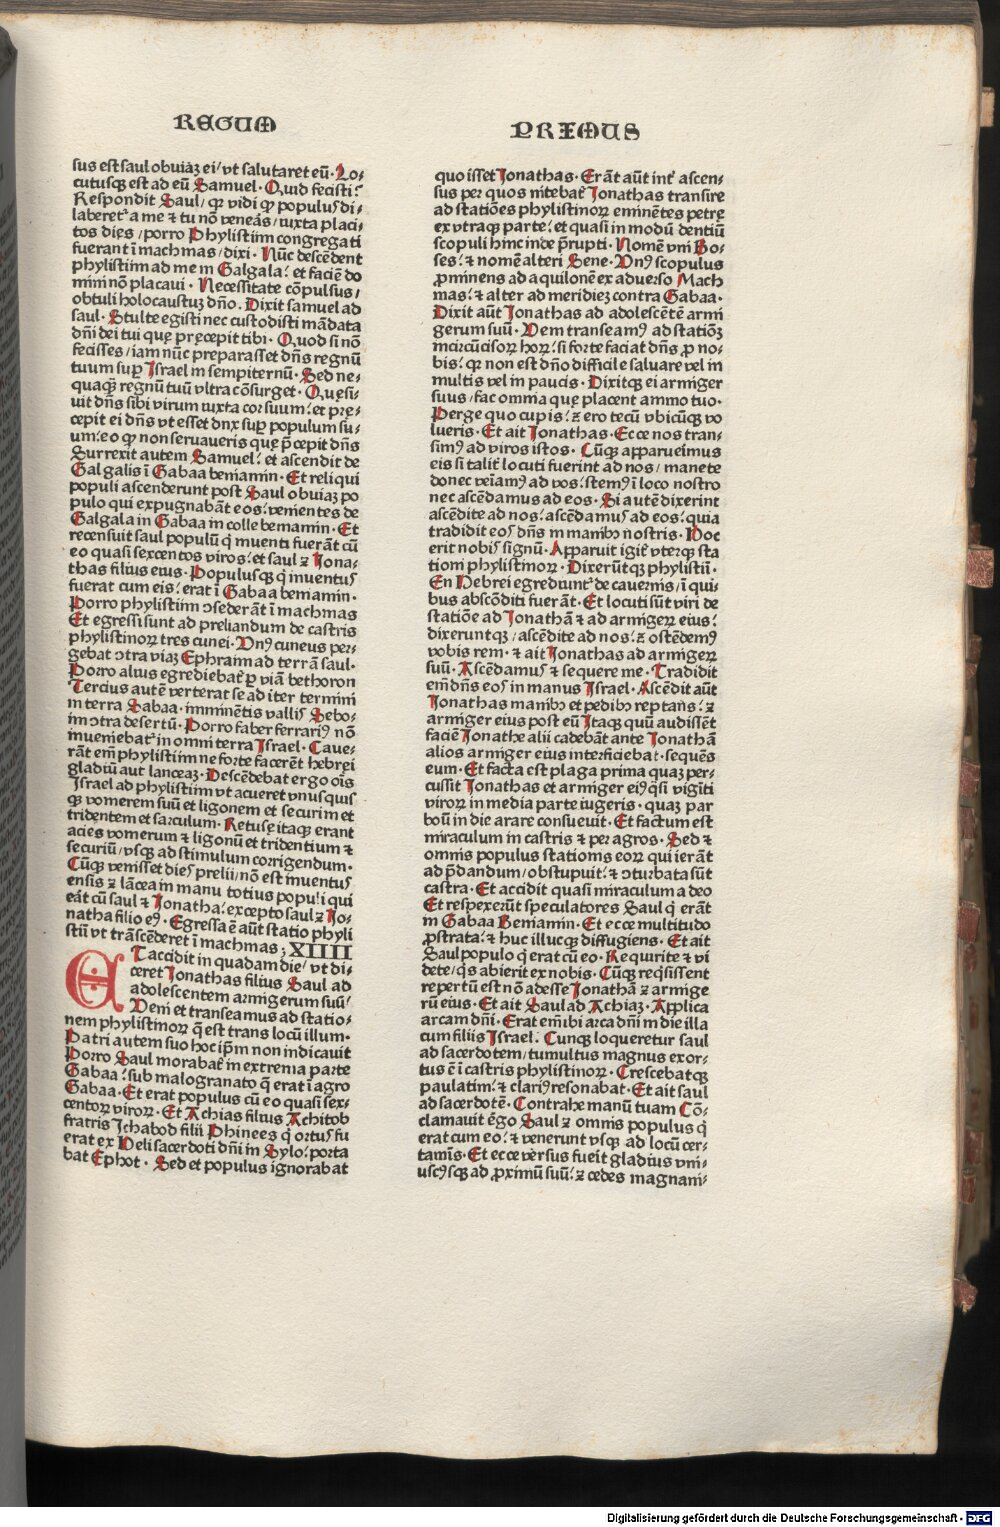 REGUM
sus est saul obuiaꝫ ei/ vt salutaret eū · Lo⸗
cutusqꝫ est ad eū Samuel · Quid fecisti?
Respondit Saul/ qꝛ vidi qꝫ populus di⸗
laberet᷑ a me & tu nō veneās/ iuxta placi⸗
tos dies/ porro Phylistiim congregati
fuerant ī machmas/ dixi · Nūc descēdent
phylistiim ad me in Galgala: et faciē do
mini nō placaui · Necessitate cōpulsus/
obtuli holocaustuꝫ dn̄o. Dixit samuel ad
saul · Stulte egisti nec custodisti mādata
dn̄i dei tui quę pręcepit tibi · Quod si nō
fecisses/ iam nūc preparasset dn̄s regnū
tuum sup̱ Israel in sempiternū · Sed ne⸗
quaqꝫ regnū tuū vltra cōsurget · Quęsi⸗
uit dn̄s sibi virum iuxta cor suum: et prę⸗
cepit ei dn̄s vt esset dux sup̱ populum su⸗
um: eo qꝫ non seruaueris quę p̄cepit dn̄s
Surrexit autem Samuel: et ascendit de
Galgalis ī Gabaa beniamin · Et reliqui
populi ascenderunt post Saul obuiaꝫ po
pulo qui expugnabāt eos: venientes de
Galgala in Gabaa in colle beniamin · Et
recensuit saul populū q̇ inuenti fuerāt cū
eo quasi sexcentos viros: et saul ⁊ Iona⸗
thas filius eius · Populusqꝫ q̇ inuentus
fuerat cum eis: erat ī Gabaa beniamin ·
Porro phylistiim ↄsederāt ī machmas
Et egressi sunt ad preliandum de castris
phylistinoꝝ tres cunei · Vnꝰ cuneus per⸗
gebat ↄtra viaꝫ Ephraim ad terrā saul ·
Porro alius egrediebat᷑ ꝑ viā bethoron
Tercius autē verterat se ad iter termini
in terra Sabaa · imminētis vallis Sebo⸗
im ↄtra desertū · Porro faber ferrariꝰ nō
inueniebat᷑ in omni terra Israel · Caue⸗
rāt em̄ phylistiim ne forte facerēt hebręi
gladiū aut lanceaꝫ · Descēdebat ergo oīs
Israel ad phylistiim vt acueret vnusquis
qꝫ vomerem suū et ligonem et securim et
tridentem et sarculum · Retusę itaqꝫ erant
acies vomerum & ligonū et tridentium &
securiū/ vsqꝫ ad stimulum corrigendum ·
Cūqꝫ venisset dies prelii/ nō est inuentus
ensis ⁊ lācea in manu totius populi qui
eāt cū saul & Ionatha: excepto saul ⁊ Io⸗
natha filio eꝰ · Egressa ē aūt statio phyli
stiū vt trāscēderet ī machmas; XIIII
ET accidit in quadam die/ vt di⸗
ceret Ionathas filius Saul ad
adolescentem armigerum suū/
Veni et transeamus ad statio⸗
nem phylistinoꝝ q̄ est trans locū illum ·
Patri autem suo hoc ip̄m non indicauit
Porro Saul morabat᷑ in extrema parte
Gabaa: sub malogranato q̄ erat ī agro
Gabaa · Et erat populus cū eo quasi sex⸗
centoꝝ viroꝝ · Et Achias filius Achitob
fratris Ichabod filii Phinees q̇ ortus fu
erat ex Heli sacerdoti dn̄i in Sylo: porta
bat Ephot · Sed et populus ignorabat
PRIMUS
quo isset Ionathas · Erāt aūt int᷑ ascen⸗
sus per quos nitebat᷑ Ionathas transire
ad statiōes phylistinoꝝ eminētes petrę
ex vtraqꝫ parte: et quasi in modū dentiū
scopuli hinc inde p̄rupti · Nomē vni Bo⸗
ses: & nomē alteri Sene · Vnꝰ scopulus
ꝓminens ad aquilonē ex aduerso Mach
mas: & alter ad meridieꝫ contra Gabaa ·
Dixit aūt Ionathas ad adolescētē armi
gerum suū · Veni transeamꝰ ad statiōꝫ
incircūcisoꝝ hoꝝ: si forte faciat dn̄s ꝓ no⸗
bis: qꝛ non est dn̄o difficile saluare vel in
multis vel in paucis · Dixitqꝫ ei armiger
suus/ fac omnia quę placent animo tuo ·
Perge quo cupis: ⁊ ero tecū vbicūqꝫ vo
lueris · Et ait Ionathas · Ecce nos tran⸗
simꝰ ad viros istos · Cūqꝫ apparueimus
eis si talit᷑ locuti fuerint ad nos/ manete
donec veiāmꝰ ad vos: stemꝰ ī loco nostro
nec ascēdamus ad eos · Si autē dixerint
ascēdite ad nos: ascēdamus ad eos: quia
tradidit eos dn̄s in manibꝫ nostris · Hoc
erit nobis signū · Apparuit igit᷑ vterqꝫ sta
tioni phylistinoꝝ · Dixerūtqꝫ phylistiī ·
En Hebrei egrediunt᷑ de cauernis/ ī qui⸗
bus abscōditi fuerāt · Et locuti sūt viri de
statiōe ad Ionathā & ad armigeꝝ eius:
dixeruntqꝫ / ascēdite ad nos: ⁊ ostēdemꝰ
vobis rem · & ait Ionathas ad armigeꝝ
suū · Ascēdamus & sequere me · Tradidit
em̄ dn̄s eos in manus Israel · Ascēdit aūt
Ionathas manibꝫ et pedibꝫ reptans: ⁊
armiger eius post eū Itaqꝫ quū audissēt
faciē Ionathe alii cadebāt ante Ionathā
alios armiger eius interficiebat · sequēs
eum · Et facta est plaga prima quaꝫ per⸗
cussit Ionathas et armiger eiꝰ q̇si vigīti
viroꝝ in media parte iugeris · quaꝫ par
boū in die arare consueuit · Et factum est
miraculum in castris & per agros · Sed &
omnis populus stationis eoꝝ qui ierāt
ad p̄dandum/ obstupuit: & ↄturbata sūt
castra · Et accidit quasi miraculum a deo
Et respexerūt speculatores Saul q̇ erāt
in Gabaa Beniamin · Et ecce multitudo
ꝓstrata: & huc illucqꝫ diffugiens · Et ait
Saul populo q̇ erat cū eo · Requirite & vi
dete/ q̇s abierit ex nobis · Cūqꝫ reqsissent
repertū est nō adesse Ionathā ⁊ armige
rū eius · Et ait Saul ad Achiaꝫ · Applica
arcam dn̄i · Erat em̄ ibi arca dn̄i in die illa
cum filiis Israel. Cunqꝫ loqueretur saul
ad sacerdotem/ tumultus magnus exor⸗
tus ē ī castris phylistinoꝝ · Crescebatqꝫ
paulatim: & clariꝰ resonabat · Et ait saul
ad sacerdotē · Contrahe manū tuam Cō⸗
clamauit ēgo Saul ⁊ omnis populus q̇
erat cum eo: & venerunt vsqꝫ ad locū cer⸗
taminis · Et ecce versus fueīt gladius vni⸗
uscꝰsqꝫ ad ꝓximū suū: ⁊ cedes magna ni⸗
Digitalisierung gefördert durch die Deutsche Forschungsgemeinschaft · DFG